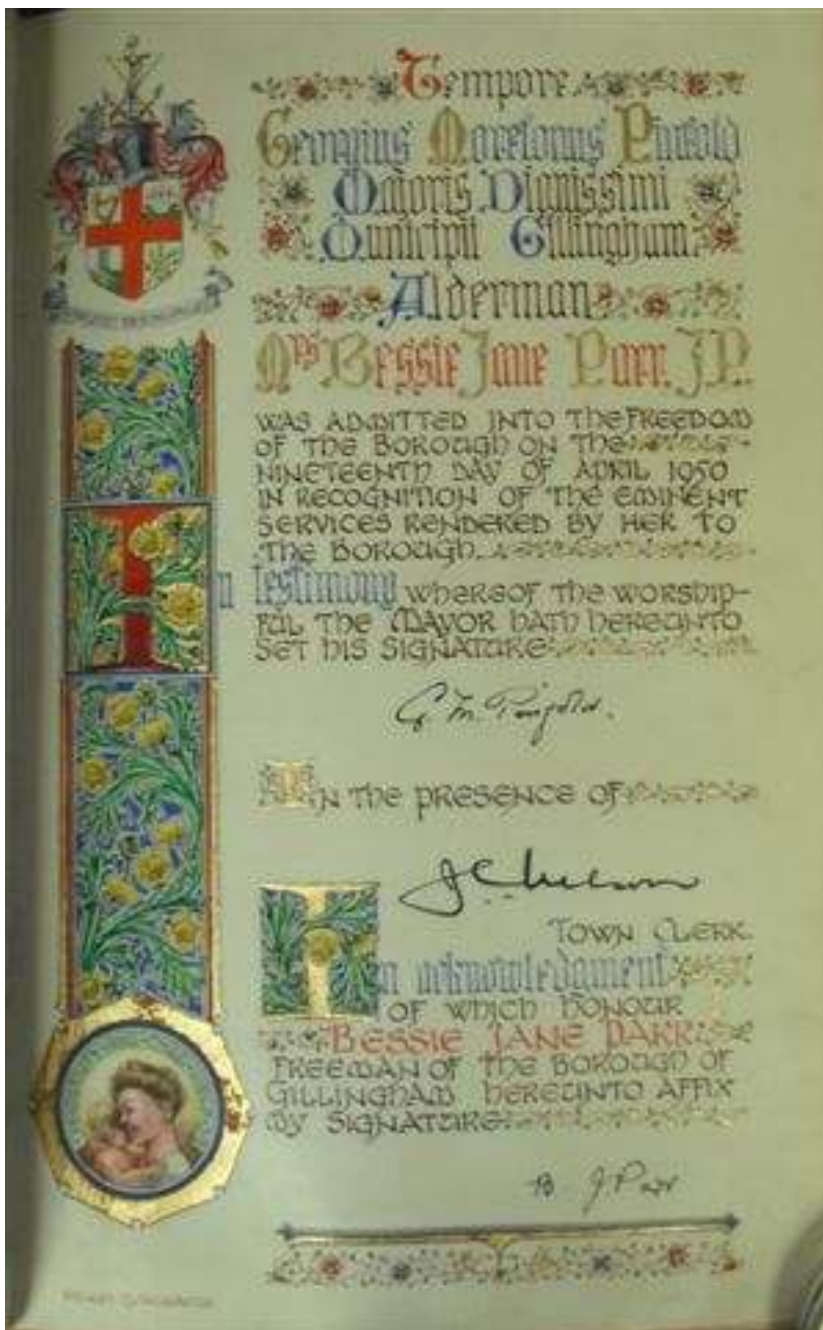 Tempore
Georgius Moretonus Pinfold
Majoris Dignissimi
Municipii Gillingham
Alderman
Mrs Bessie Jane Parr. J.P.
WAS ADMITTED INTO THE FREEDOM
OF THE BOROUGH ON THE
NINETEENTH DAY OF APRIL 1950
IN RECOGNITION OF THE EMINENT
SERVICES RENDERED BY HER TO
THE BOROUGH.
In testimony WHEREOF THE WORSHIP-
FUL THE MAYOR HATH HEREUNTO
SET HIS SIGNATURE
G M. Pinfold.
IN THE PRESENCE OF
TOWN CLERK.
In acknowledgment
OF WHICH HONOUR
I BESSIE JANE PARR
FREEMAN OF THE BOROUGH OF
GILLINGHAM HEREUNTO AFFIX
MY SIGNATURE
B J Parr